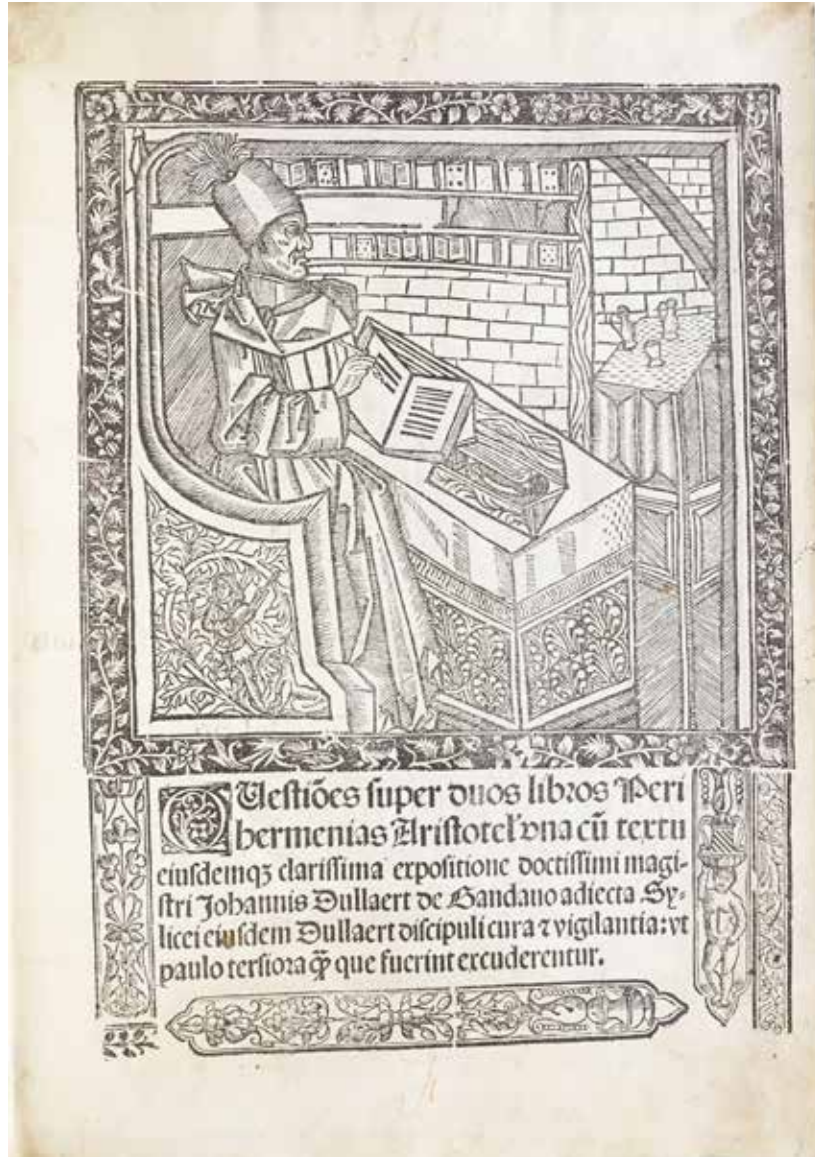 Questiões super duos libros Peri
hermenias Aristotel' vna cũ textu
eiusdemqꝫ clarissima expositione doctissimi magi-
stri Johannis Dullaert de Gandauo adiecta Sy-
licei eiusdem Dullaert discipuli cura ⁊ vigilantia: vt
paulo tersiora qꝫ̃ que fuerint excuderentur.